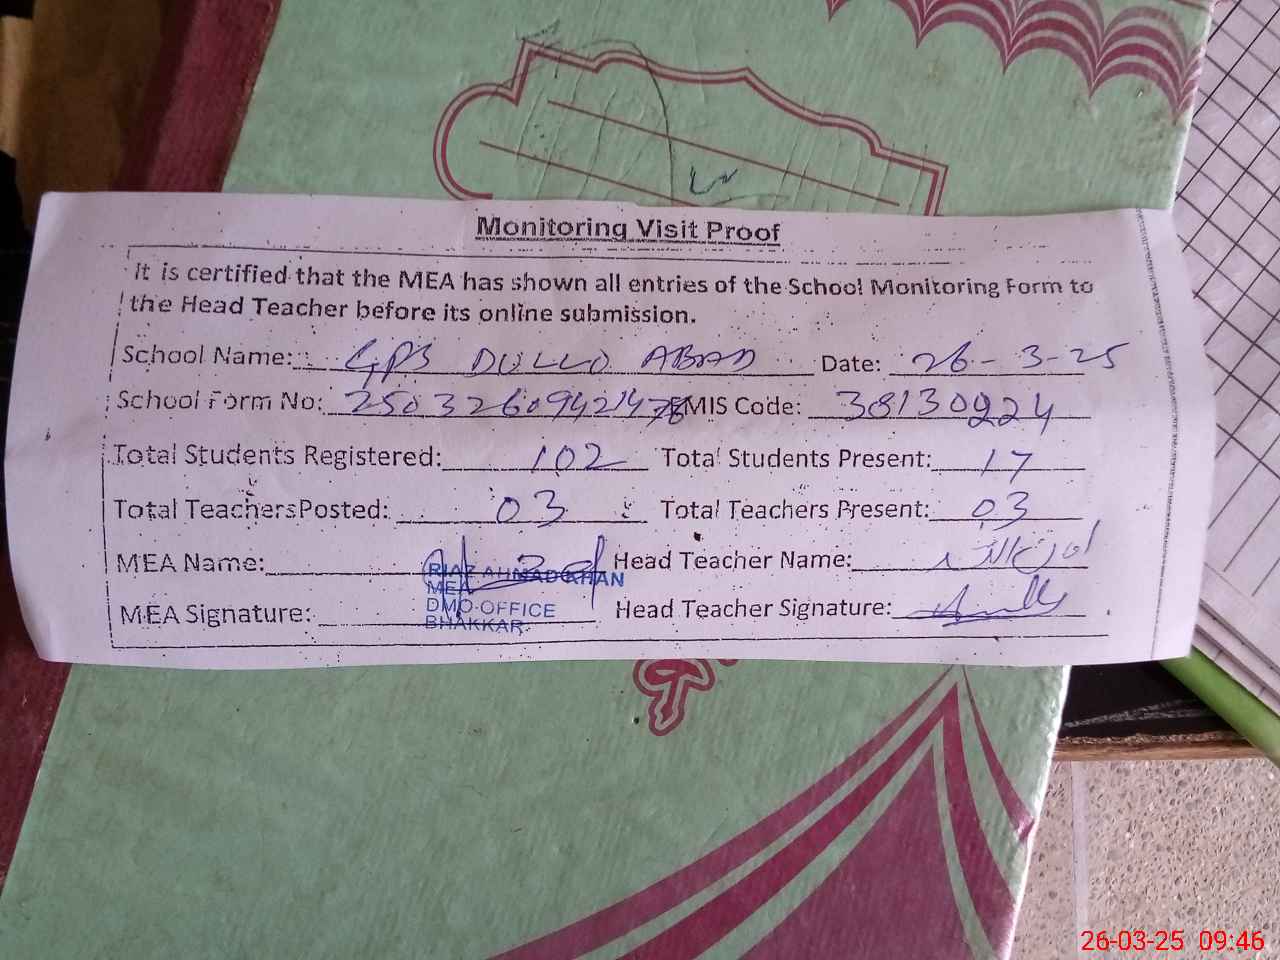 Monitoring Visit Proof
It is certified that the MEA has shown all entries of the School Monitoring Form to
the Head Teacher before its online submission.
School Name: GPS DULLO ABAD Date: 26-3-25
School Form No: EMIS Code: 38130224
Total Students Registered: 102 Total Students Present: 17
Total Teachers Posted: 03 Total Teachers Present: 03
MEA Name: Head Teacher Name:
RIAZ AHMAD KHAN
MEA
DMO OFFICE
BHAKKAR
MEA Signature: Head Teacher Signature:
26-03-25 09:46